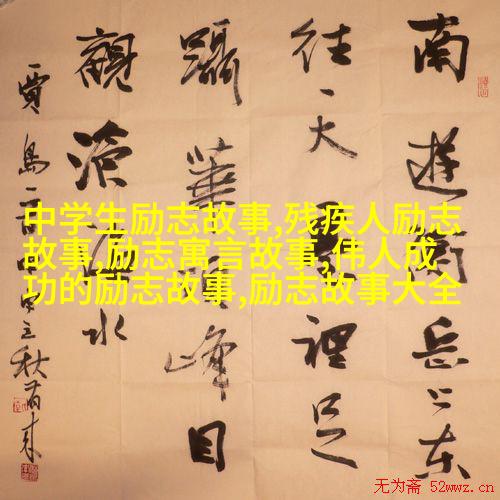 南遊衡岳上東
往天裡足
躡華頂峰目
觀滄水
賈島 立秋
中学生励志故事,残疾人励志
故事,励志寓言故事,伟人成
功的励志故事,励志故事大全
无为斋 52wwz.cn